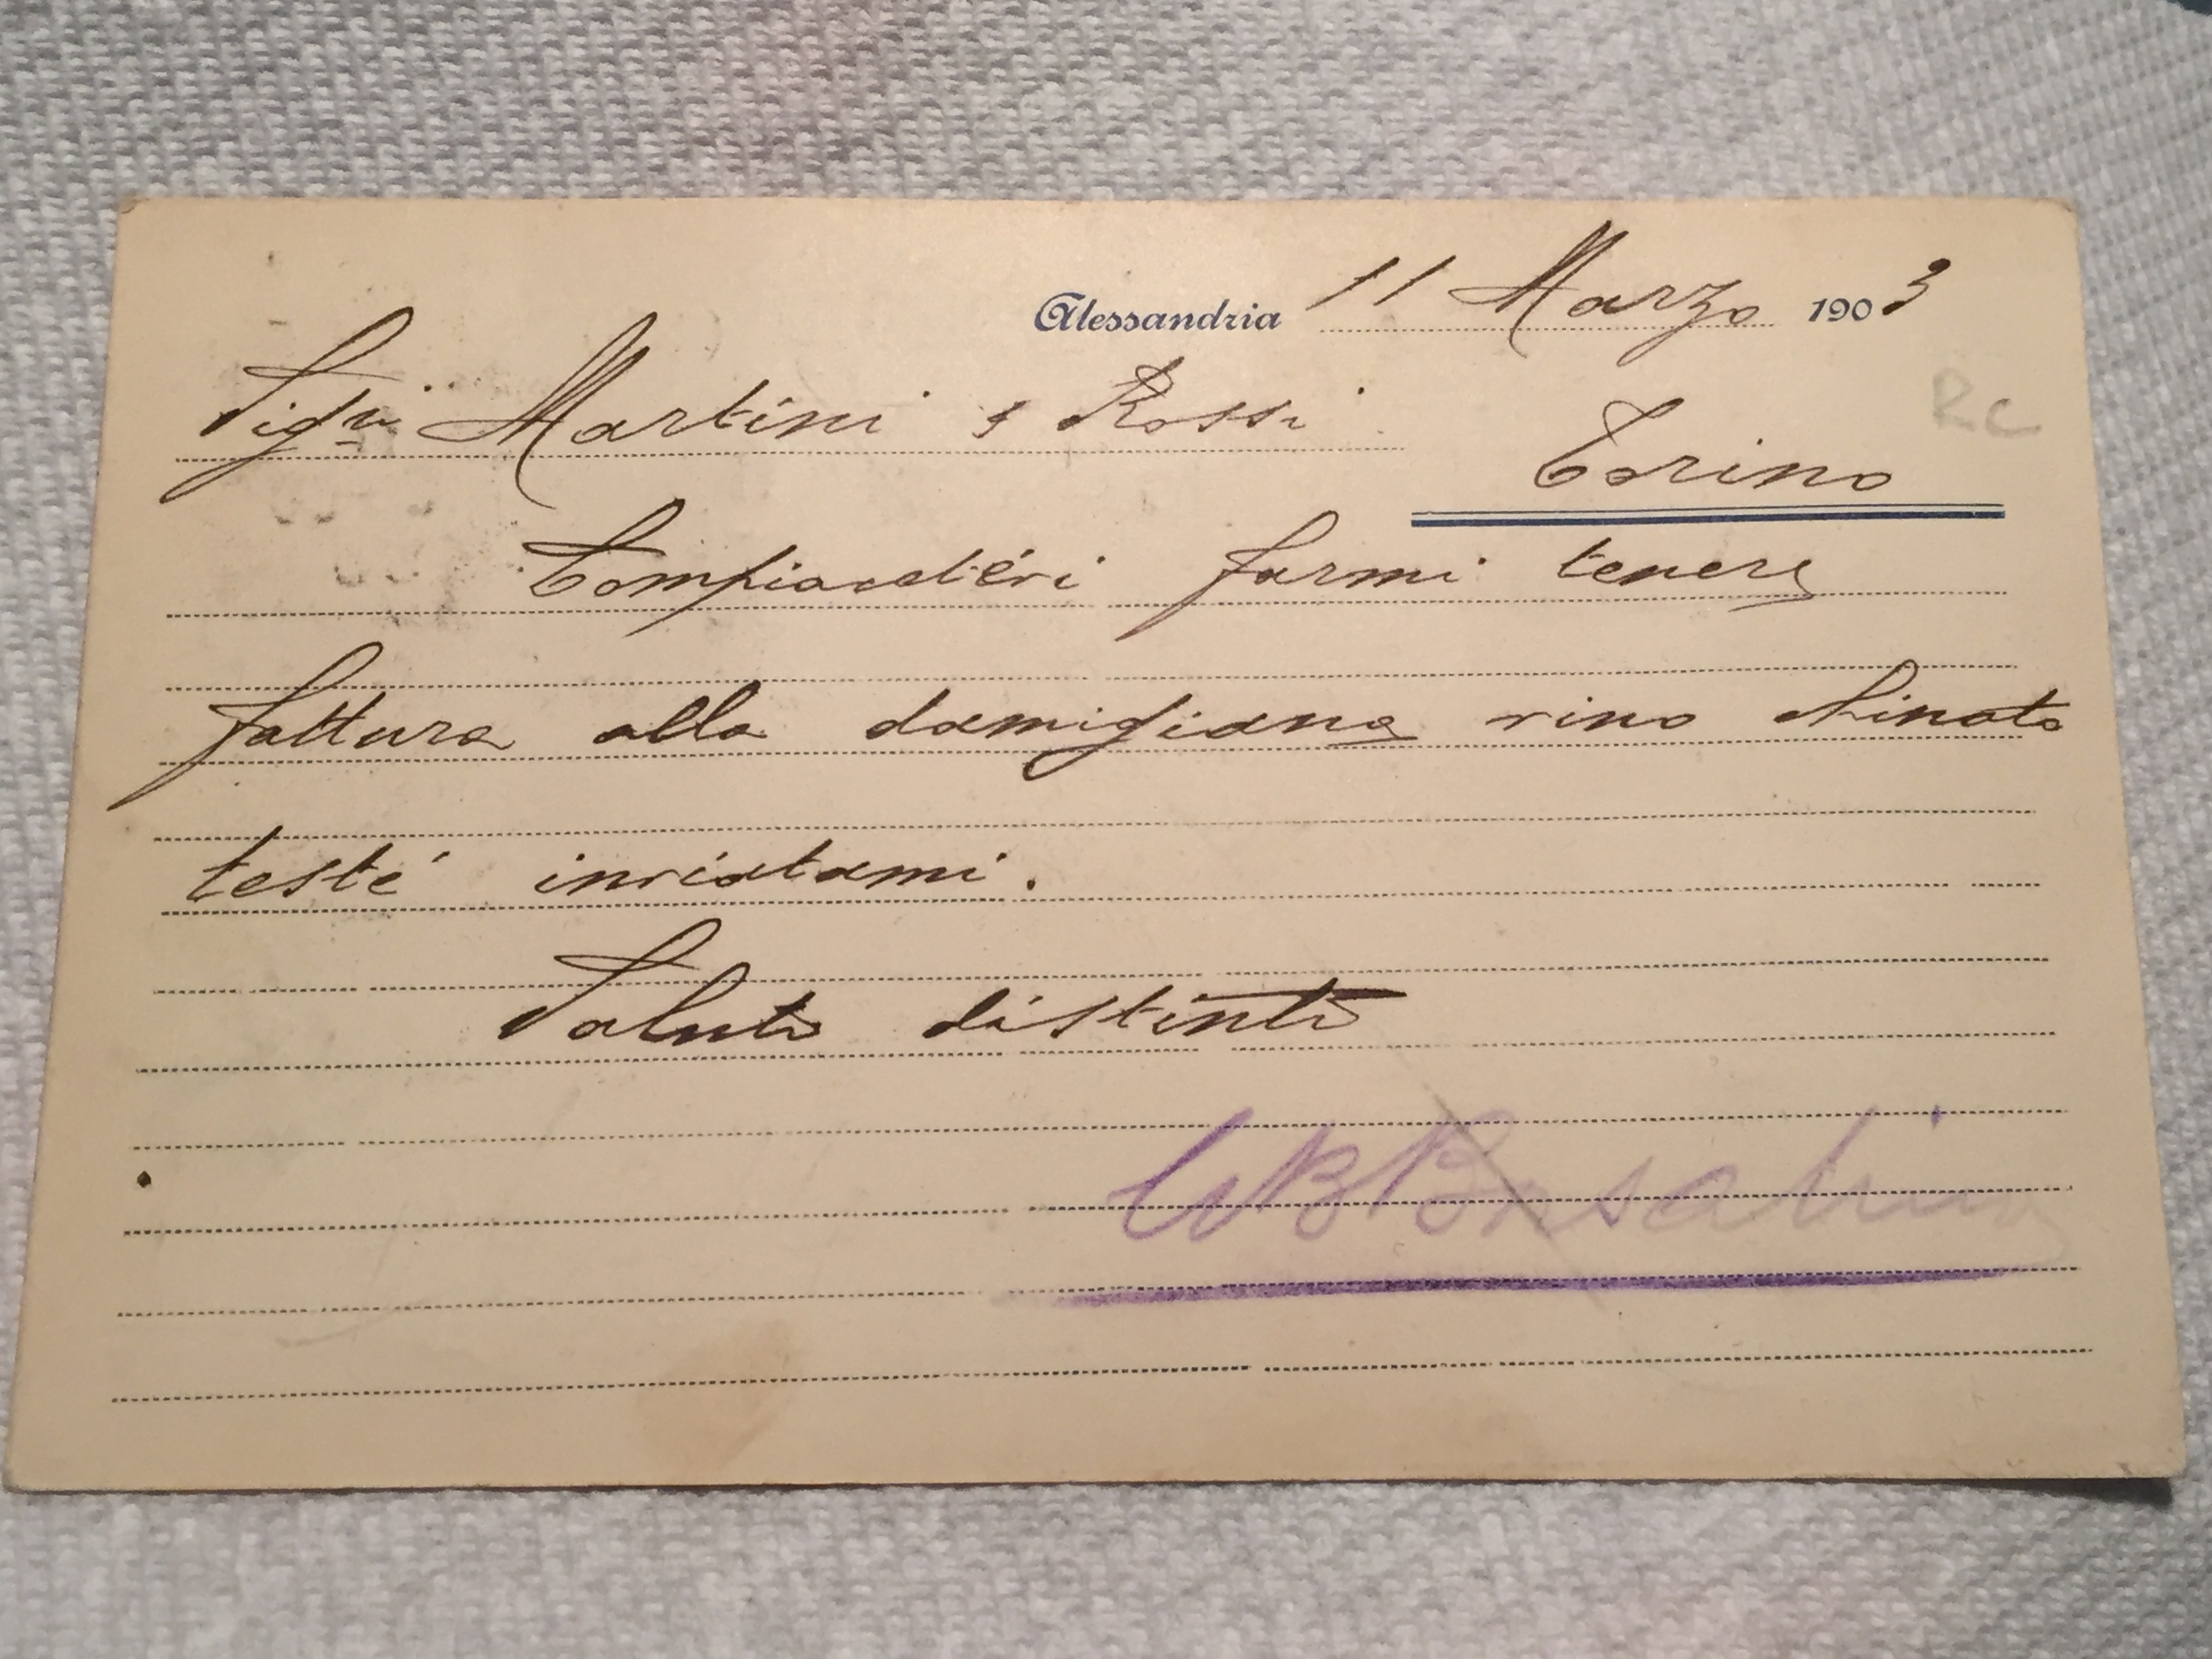 Alessandria 11 Marzo 1903
Sigri Martini & Rossi
R.C
Torino
Compiacetévi farmi tenere
fattura alla damigiana vino chinato
testé inviatami.
Saluti distinti